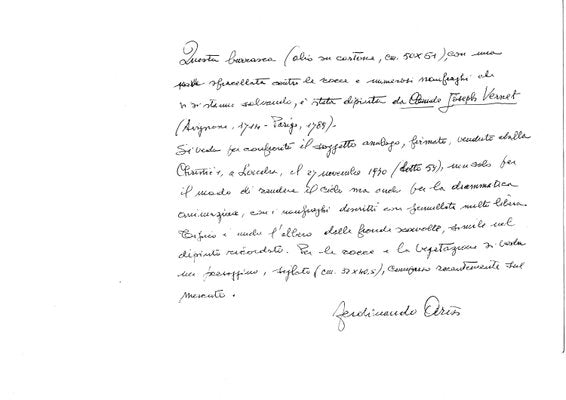 Questa burrasca (olio su cartone, cm. 50x61), con una
sfracellata contro le rocce e numerosi naufraghi che
si stanno salvando, è stata dipinta da Claude Joseph Vernet
(Avignone, 1714 - Parigi, 1789).
Si veda per confronto il soggetto analogo, firmato, venduto dalla
Christie's, a Londra, il 27 novembre 1970 (lotto 59), non solo per
il modo di rendere il cielo ma anche per la drammatica
animazione, con i naufraghi descritti con pennellata molto libera.
Tipico è anche l'albero dalle fronde sconvolte, simile nel
dipinto ricordato. Per le rocce e la vegetazione si veda
un paesaggino, siglato (cm. 37x40,5), comparso recentemente sul
mercato.
Ferdinando Arisi